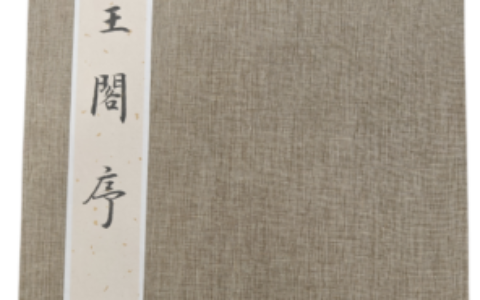 王閣序